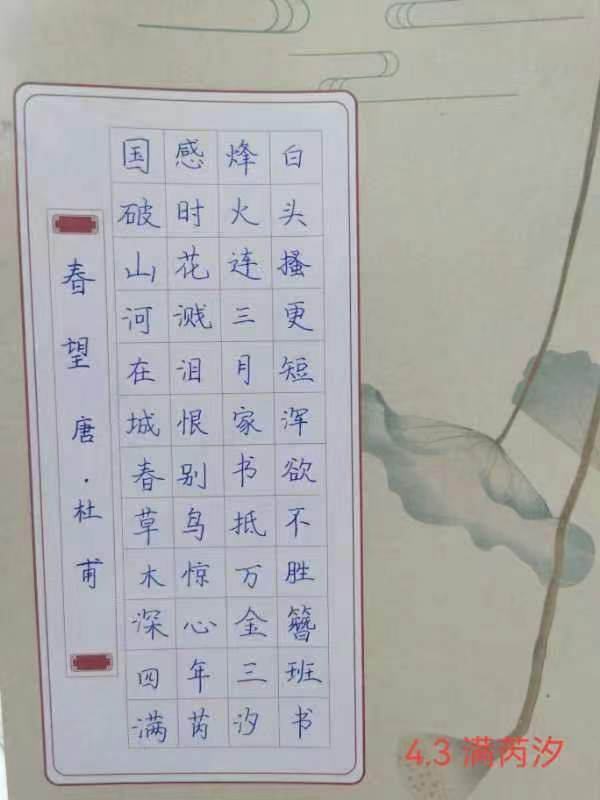 春望 唐·杜甫
国破山河在城春草木深
感时花溅泪恨别鸟惊心
烽火连三月家书抵万金
白头搔更短浑欲不胜簪
四年三班
满芮汐书
4.3 满芮汐